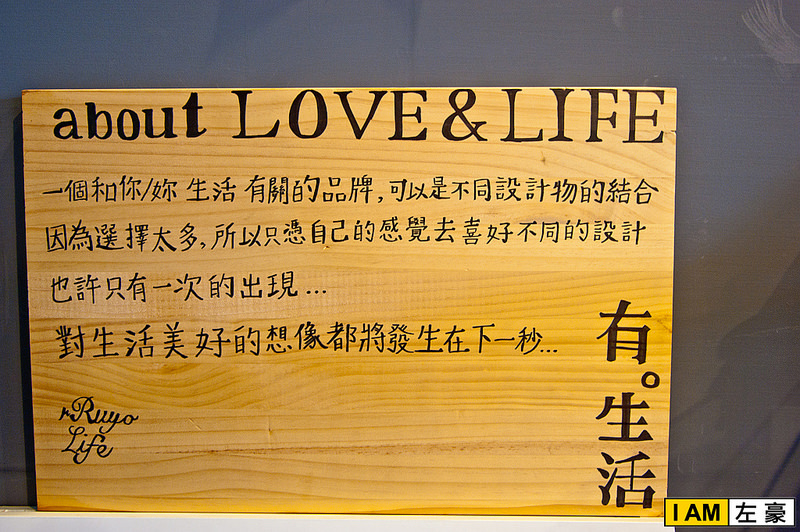 about LOVE & LIFE
一個和你/妳 生活 有關的品牌,可以是不同設計物的結合
因為選擇太多,所以只憑自己的感覺去喜好不同的設計
也許只有一次的出現...
對生活美好的想像都將發生在下一秒...
有。生活
rRuyo
Life
I AM 左豪